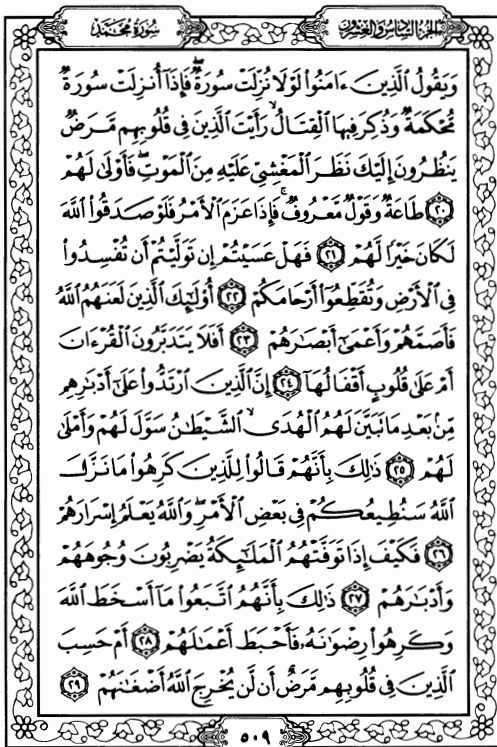 الجزء السادس والعشرون
سورة محمد
وَيَقُولُ ٱلَّذِينَ ءَامَنُوا۟ لَوْلَا نُزِّلَتْ سُورَةٌ ۖ فَإِذَآ أُنزِلَتْ سُورَةٌ
مُّحْكَمَةٌ وَذُكِرَ فِيهَا ٱلْقِتَالُ ۙ رَأَيْتَ ٱلَّذِينَ فِى قُلُوبِهِم مَّرَضٌ
يَنظُرُونَ إِلَيْكَ نَظَرَ ٱلْمَغْشِىِّ عَلَيْهِ مِنَ ٱلْمَوْتِ ۖ فَأَوْلَىٰ لَهُمْ
٢٠ طَاعَةٌ وَقَوْلٌ مَّعْرُوفٌ ۚ فَإِذَا عَزَمَ ٱلْأَمْرُ فَلَوْ صَدَقُوا۟ ٱللَّهَ
لَكَانَ خَيْرًا لَّهُمْ ٢١ فَهَلْ عَسَيْتُمْ إِن تَوَلَّيْتُمْ أَن تُفْسِدُوا۟
فِى ٱلْأَرْضِ وَتُقَطِّعُوٓا۟ أَرْحَامَكُمْ ٢٢ أُو۟لَٰٓئِكَ ٱلَّذِينَ لَعَنَهُمُ ٱللَّهُ
فَأَصَمَّهُمْ وَأَعْمَىٰٓ أَبْصَٰرَهُمْ ٢٣ أَفَلَا يَتَدَبَّرُونَ ٱلْقُرْءَانَ
أَمْ عَلَىٰ قُلُوبٍ أَقْفَالُهَآ ٢٤ إِنَّ ٱلَّذِينَ ٱرْتَدُّوا۟ عَلَىٰٓ أَدْبَٰرِهِم
مِّنۢ بَعْدِ مَا تَبَيَّنَ لَهُمُ ٱلْهُدَى ۙ ٱلشَّيْطَٰنُ سَوَّلَ لَهُمْ وَأَمْلَىٰ
لَهُمْ ٢٥ ذَٰلِكَ بِأَنَّهُمْ قَالُوا۟ لِلَّذِينَ كَرِهُوا۟ مَا نَزَّلَ
ٱللَّهُ سَنُطِيعُكُمْ فِى بَعْضِ ٱلْأَمْرِ ۖ وَٱللَّهُ يَعْلَمُ إِسْرَارَهُمْ
٢٦ فَكَيْفَ إِذَا تَوَفَّتْهُمُ ٱلْمَلَٰٓئِكَةُ يَضْرِبُونَ وُجُوهَهُمْ
وَأَدْبَٰرَهُمْ ٢٧ ذَٰلِكَ بِأَنَّهُمُ ٱتَّبَعُوا۟ مَآ أَسْخَطَ ٱللَّهَ
وَكَرِهُوا۟ رِضْوَٰنَهُۥ فَأَحْبَطَ أَعْمَٰلَهُمْ ٢٨ أَمْ حَسِبَ
ٱلَّذِينَ فِى قُلُوبِهِم مَّرَضٌ أَن لَّن يُخْرِجَ ٱللَّهُ أَضْغَٰنَهُمْ ٢٩
٥٠٩